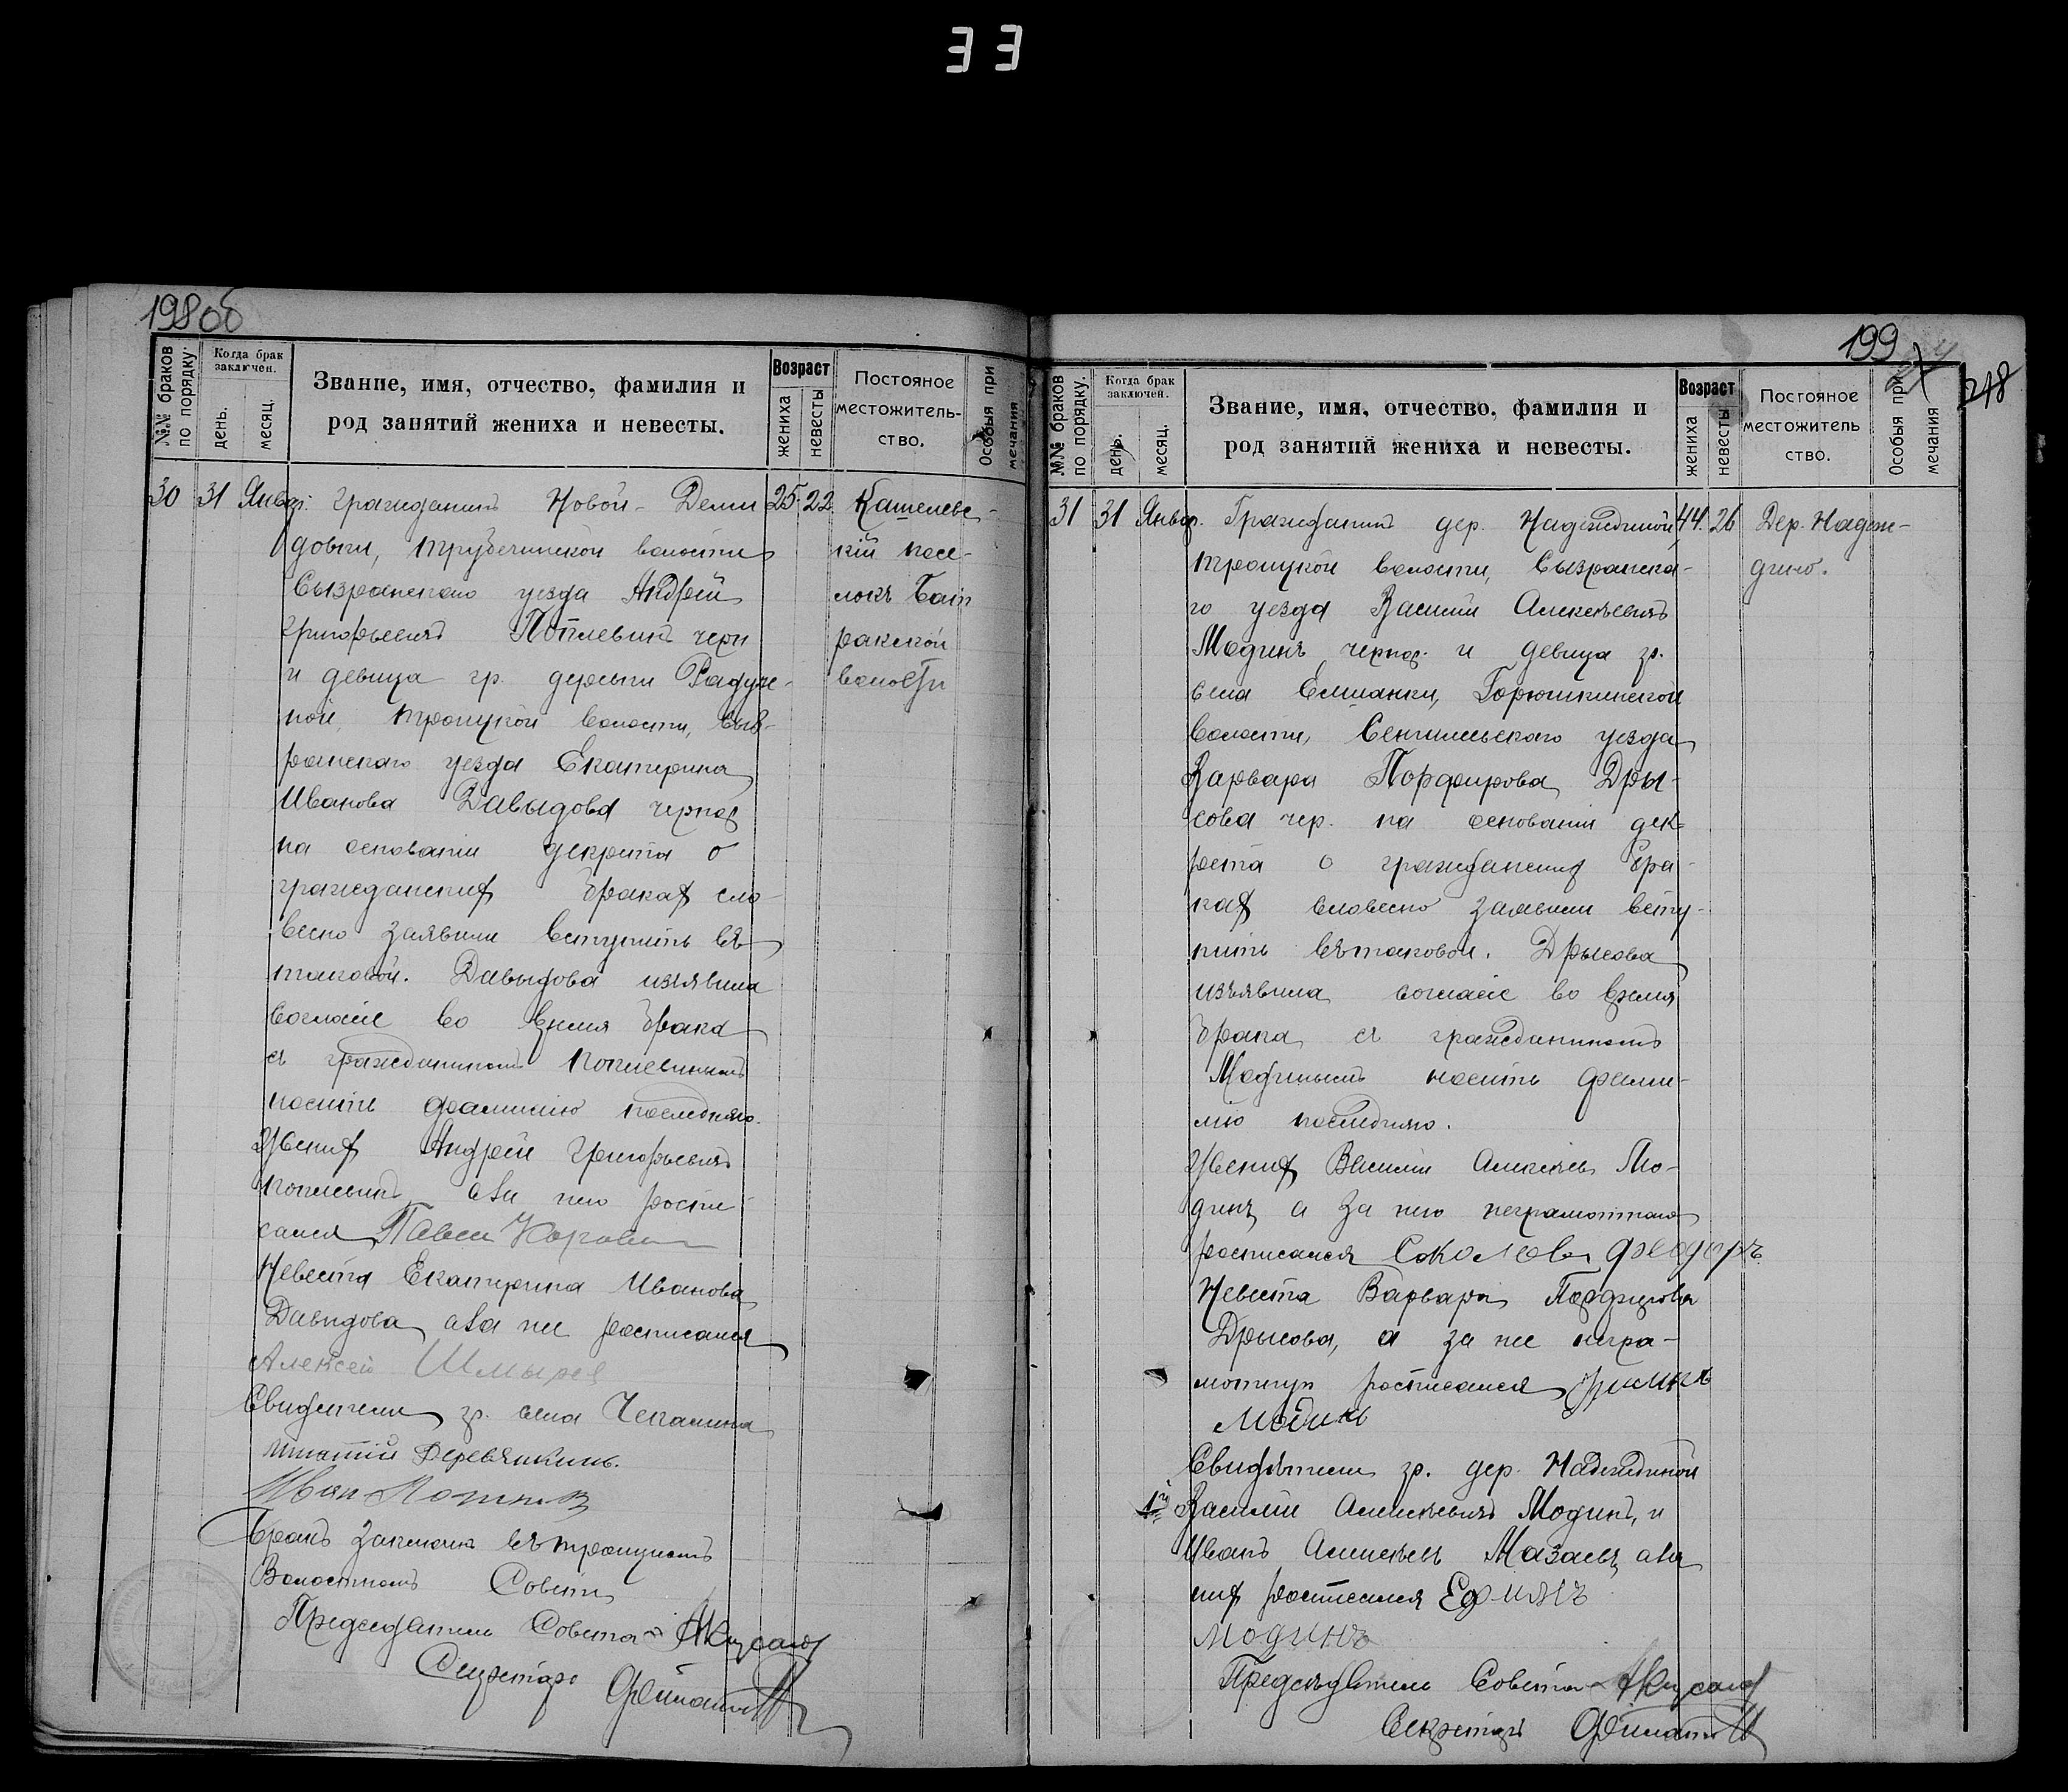 33
198об
№№ браков по порядку.
Когда брак заключен.
день.
месяц.
Звание, имя, отчество, фамилия и
род занятий жениха и невесты.
Возраст
жениха
невесты
Постояное
местожитель-
ство.
Особыя при
мечания
30 31 Январ. гражданинъ Новой-Деми 25. 22 Кашелевс-
довки, волости кій посе-
Сызранскаго уезда Андрей локъ Бат
Григорьевичъ черн ракской
и девица гр. деревни Радуж- волости
ной, троицкой волости, Сыз-
ранскаго уезда Екатерина
Иванова Давыдова чернор
на основаніи декрета о
гражданских браках сло-
весно заявили вступить въ
таковой. Давыдова изъявила
согласіе во время брака
съ гражданиномъ
носить фамилию последняго.
Жених Андрей Григорьевичъ
а за него роспи
сался Павел
Невеста Екатерина Иванова
Давыдова а за нее росписался
Алексей Шмырев
Свидетели гр. села Чекалина
Игнатий Деревянкинъ.
Иван
Бракъ заключен въ троицкомъ
Волостномъ Совети
Председатель Совета
Секретарь
199
248
№№ браков по порядку.
Когда брак заключен.
день.
месяц.
Звание, имя, отчество, фамилия и
род занятий жениха и невесты.
Возраст
жениха
невесты
Постояное
местожитель
ство.
Особыя при
мечания
31 31 Январ. Гражданинъ дер. Надеждиной 44. 26 Дер. Надеж-
троицкой волости, Сызранска- дино.
го уезда Василий Алексеевичъ
Модинъ чернор. и девица гр.
села Елшанки, Горюшкинской
волости, Сенгилеевскаго уезда
Варвара Порфирова Дры-
сова чер. на основании дек-
рета о гражданских бра-
ках словесно заявили всту-
пить въ таковой. Дрысова
изъявила согласіе во время
брака съ гражданиномъ
Модинымъ носить фами-
лию последняго.
Жених Василий Алексеев Мо-
динъ а за него неграмотнаго
росписался Соколовъ Феодоръ
Невеста Варвара Порфирова
Дрысова, а за нее негра-
мотную росписался
Модинъ
Свидетели гр. дер. Надеждиной
1й Василий Алексеевичъ Модинъ, и
Иванъ Алексеевъ Мазаевъ а за
них росписался
Модинъ
Председатель Совета
Секретарь